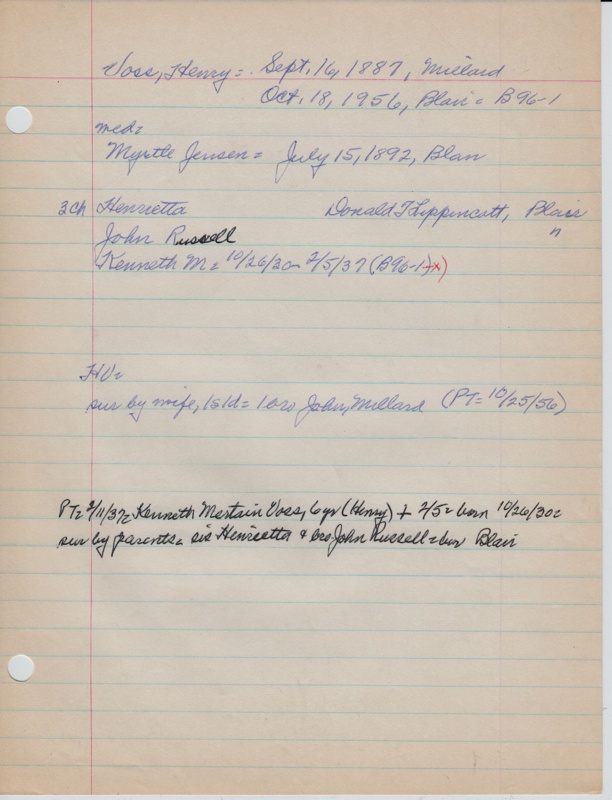 Voss, Henry = Sept. 16, 1887, Millard
Oct. 18, 1956, Blair = B96-1
med=
Myrtle Jensen = July 15, 1892, Blair
3 ch Henrietta Donald F Lippincott, Blair
n
John Russell
Kenneth M = 10/26/30 - 2/5/37 (B96-1-x)
HV=
sur by wife, 1s 1d = 1 bro John, Millard (PT= 10/25/56)
PT= 2/11/37= Kenneth Mertain Voss, 6 yr (Henry) + 2/5 = born 10/26/30 =
sur by parents = sis Henrietta & bro John Russell = bur Blair